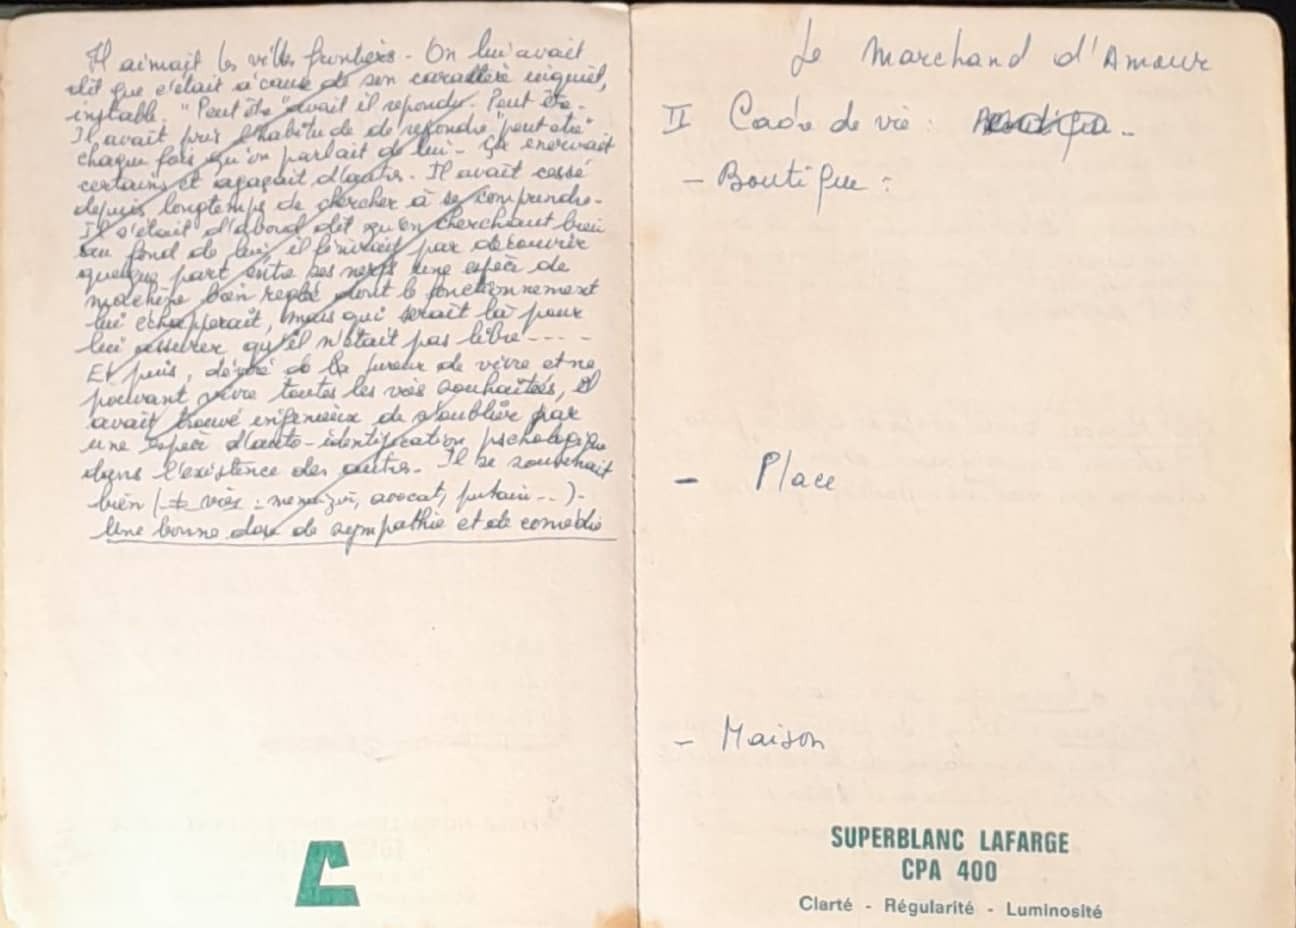 Il aimait les villes frontières. On lui avait
dit que c'était à cause de son caractère inquiet,
instable. "Peut être" avait il répondu. Peut être.
Il avait pris l'habitude de répondre "peut etre"
chaque fois qu'on parlait de lui. Ça énervait
certains et agaçait d'autres. Il avait cessé
depuis longtemps de chercher à se comprendre.
Il s'était d'abord dit qu'en cherchant bien
au fond de lui, il finirait par découvrir
quelque part entre ses nerfs une espèce de
machine bien reglée dont le fonctionnement
lui échapperait, mais qui serait là pour
lui assurer qu'il n'était pas libre....
Et puis, de la fureur de vivre et ne
pouvant vivre toutes les vies souhaitées, il
avait trouvé ingénieux de s'oublier par
une espèce d'auto-identification psychologique
dans l'existence des autres. Il se souvenait
bien (± vies : menuizier, avocat, putain...).
Une bonne dose de sympathie et de comédie
Le Marchand d'Amour
II Cadre de vie :
- Boutique :
- Place
- Maison
SUPERBLANC LAFARGE
CPA 400
Clarté - Régularité - Luminosité